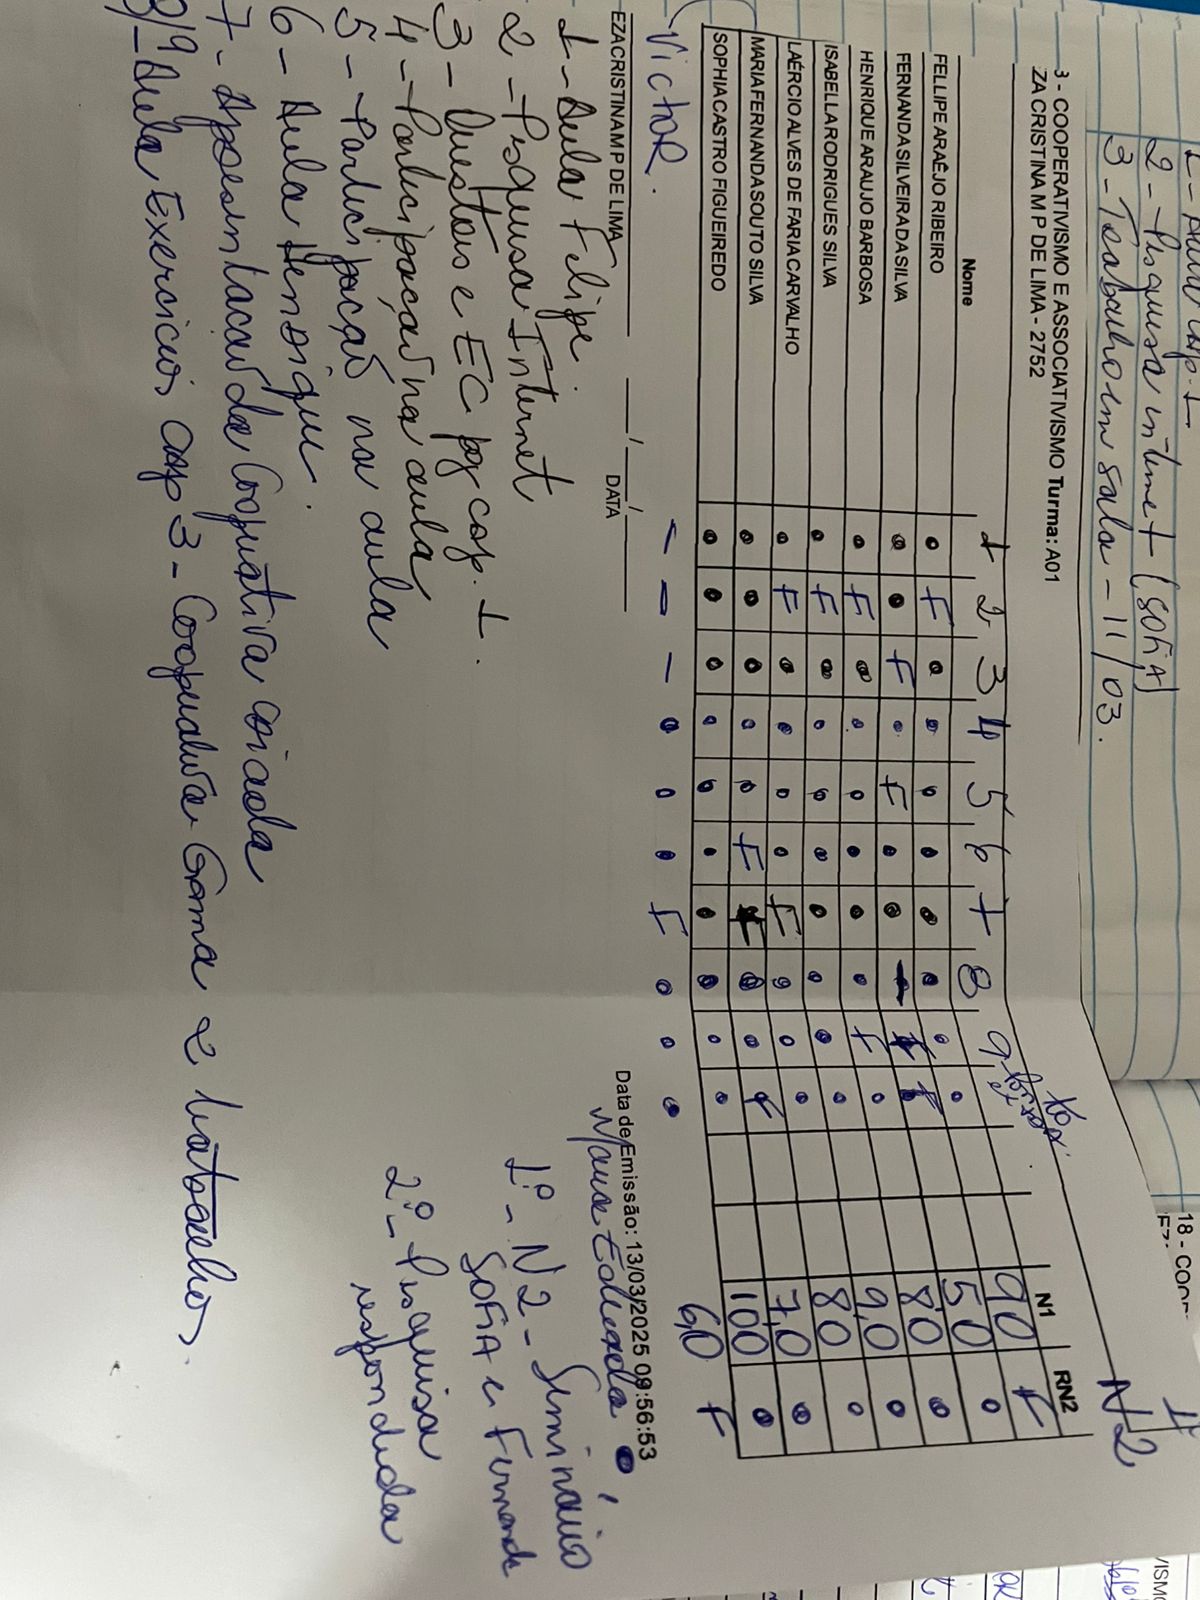 2 - Pesquisa internet (SOFIA)
3 - Trabalho em sala - 11/03.
18 - COOP
N2
3 - COOPERATIVISMO E ASSOCIATIVISMO Turma: A01
ZA CRISTINA M P DE LIMA - 2752
Nome 1 2 3 4 5 6 7 8 9 N1 RN2
FELLIPE ARAÉJO RIBEIRO • F • • • • • • • •
FERNANDA SILVEIRA DA SILVA • • F • F • •
HENRIQUE ARAUJO BARBOSA • F • • • • • • F •
ISABELLA RODRIGUES SILVA • F • • • • • • • •
LAÉRCIO ALVES DE FARIA CARVALHO • F • • • • F • • •
MARIA FERNANDA SOUTO SILVA • • • • • F F • • F
SOPHIA CASTRO FIGUEIREDO • • • • • • • • • •
VictoR. - - - • • • F • • •
90 F
50 •
80 •
9,0 •
80 •
7,0 •
100 •
6,0 F
EZA CRISTINA M P DE LIMA ___/___/___
DATA
Data de Emissão: 13/03/2025 09:56:53
Maria Eduarda •
1 - Aula Felipe.
2 - Pesquisa Internet
3 - Questões e EC pg cap. 1.
4 - Participação na aula
5 - Participação na aula
6 - Aula Henrique.
7 - Apresentação da Cooperativa criada
8/9 Aula Exercícios cap 3 - Cooperativa Gama e
1º - N2 - Seminário
SOFIA e Fernanda
2º - Pesquisa
respondida